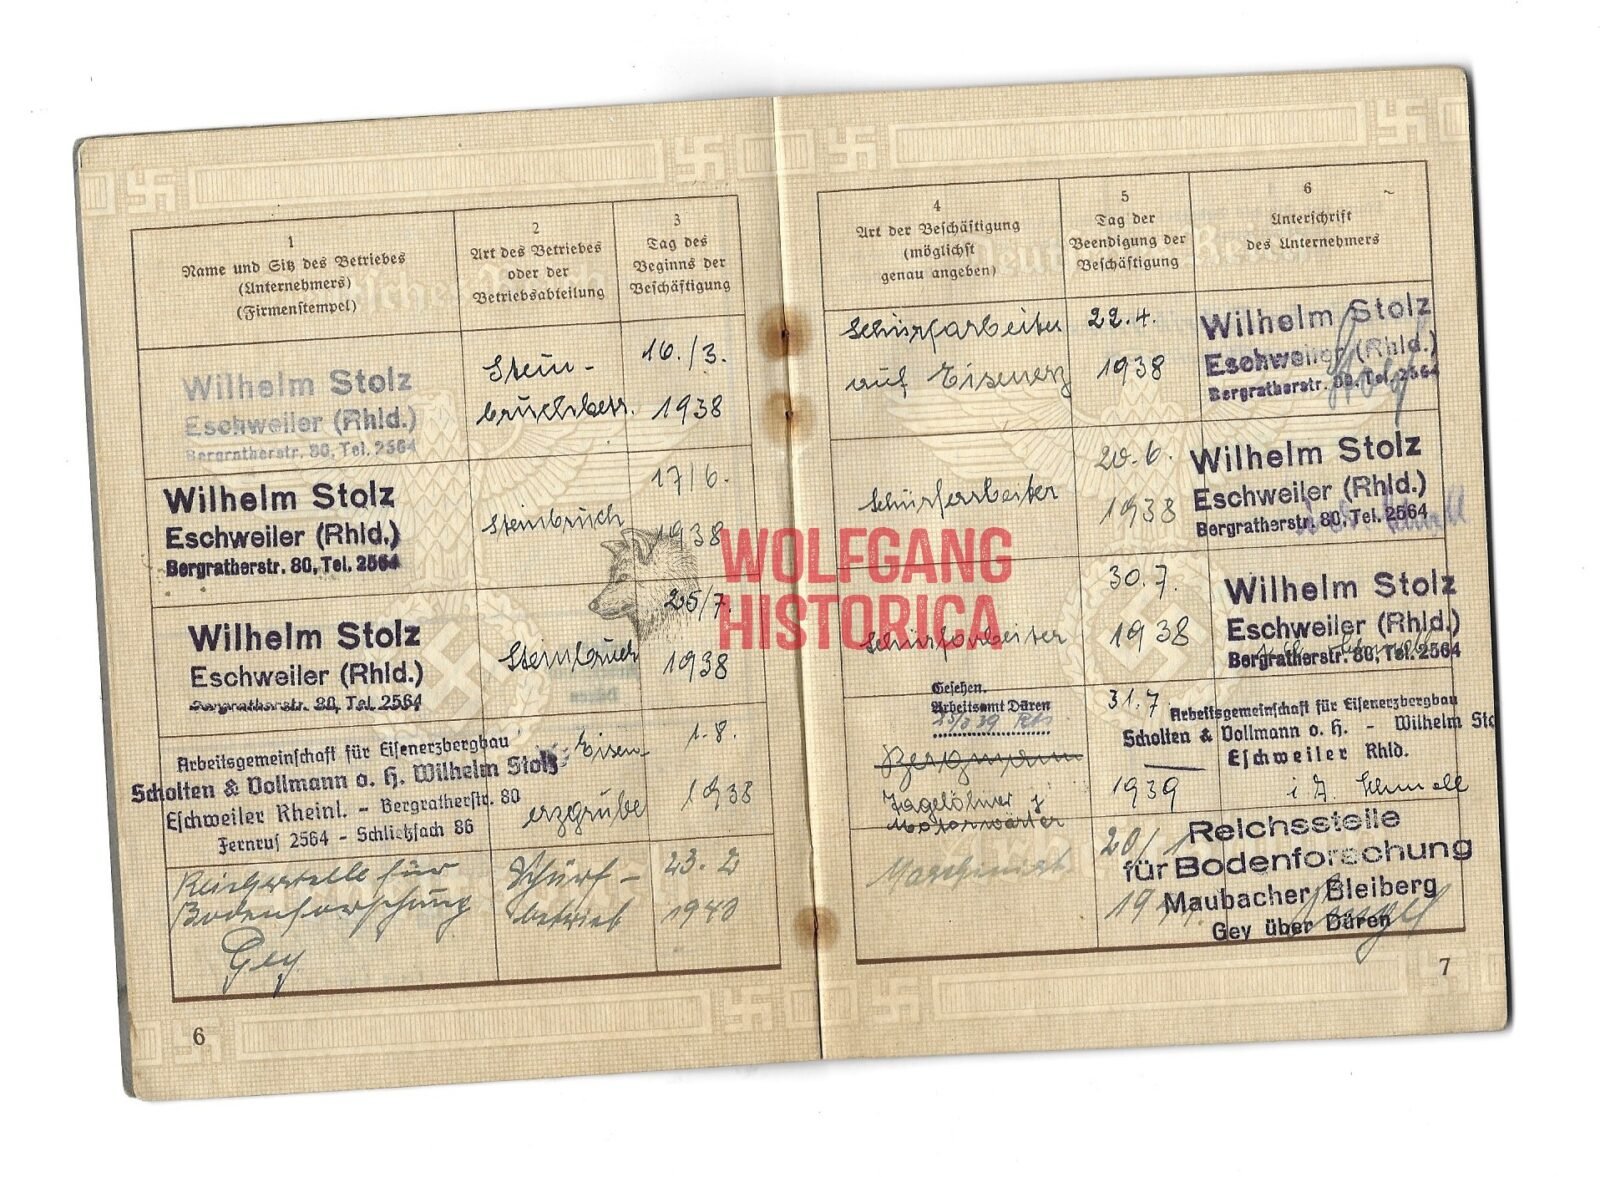 1
Name und Sitz des Betriebes
(Unternehmers)
(Firmenstempel)
2
Art des Betriebes
oder der
Betriebsabteilung
3
Tag des
Beginns der
Beschäftigung
Wilhelm Stolz
Eschweiler (Rhld.)
Bergratherstr. 80, Tel. 2564
Stein-
bruchsbetr.
16./3.
1938
Wilhelm Stolz
Eschweiler (Rhld.)
Bergratherstr. 80, Tel. 2564
Steinbruch
17/6.
1938
Wilhelm Stolz
Eschweiler (Rhld.)
Bergratherstr. 80, Tel. 2564
Steinbruch
25/7.
1938
Arbeitsgemeinschaft für Eisenerzbergbau
Scholten & Vollmann o. H. Wilhelm Stolz
Eschweiler Rheinl. - Bergratherstr. 80
Fernruf 2564 - Schließfach 86
Eisen-
erzgrube
1.8.
1938
Reichsstelle für
Bodenforschung
Gey
Schürf-
betrieb
23.2
1940
6
4
Art der Beschäftigung
(möglichst
genau angeben)
5
Tag der
Beendigung der
Beschäftigung
6
Unterschrift
des Unternehmers
Schürfarbeiten
auf Eisenerz
22.4.
1938
Wilhelm Stolz
Eschweiler (Rhld.)
Bergratherstr. 80, Tel. 2564
Schürfarbeiter
20.6.
1938
Wilhelm Stolz
Eschweiler (Rhld.)
Bergratherstr. 80, Tel. 2564
Schürfarbeiter
30.7.
1938
Wilhelm Stolz
Eschweiler (Rhld.)
Bergratherstr. 80, Tel. 2564
Gesehen.
Arbeitsamt Düren
Bergmann
Tagelöhner
Motorwärter
31.7.
1939
Arbeitsgemeinschaft für Eisenerzbergbau
Scholten & Vollmann o. H. - Wilhelm Sto
Eschweiler Rhld.
i A. Schnell
Maschinist
20/1
Reichsstelle
für Bodenforschung
Maubacher Bleiberg
Gey über Düren
7
WOLFGANG
HISTORICA